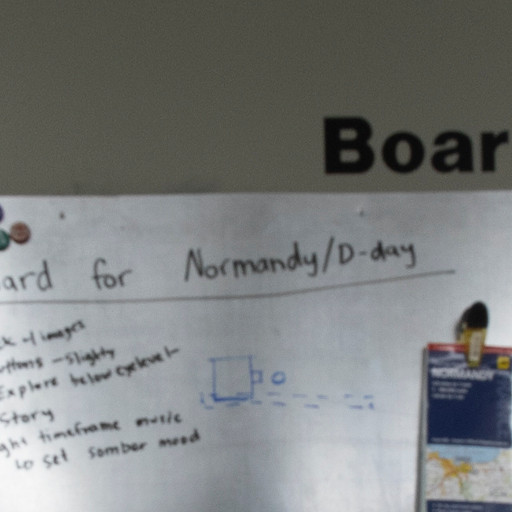 Boar
ard for Normandy/D-day
w/ images
buttons - slightly
Explore below eyelevel
Story
ght timeframe music
to set somber mood
NORMANDY